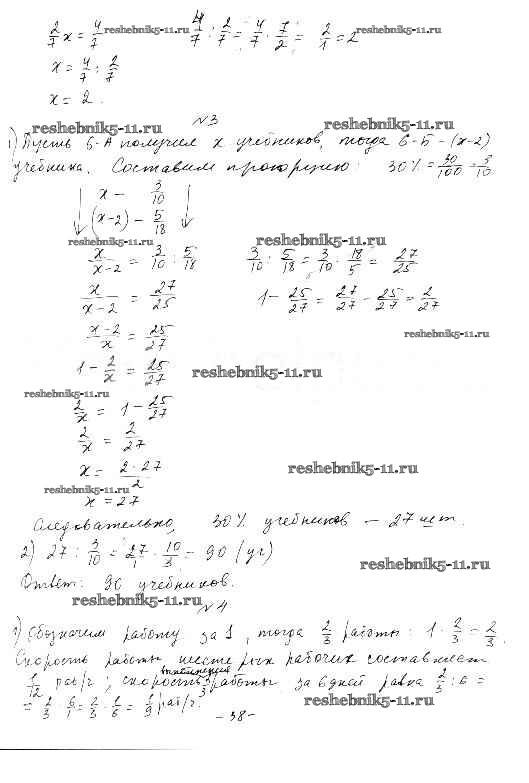 2/7 x = 4/7 reshebnik5-11.ru 4/7 : 2/7 = 4/7 · 7/2 = 2/1 = 2 reshebnik5-11.ru
x = 4/7 : 2/7
x = 2.
reshebnik5-11.ru №3 reshebnik5-11.ru
1) Пусть 6-А получил x учебников, тогда 6-Б - (x-2)
учебника. Составим пропорцию: 30% = 30/100 = 3/10
x - 3/10
(x-2) - 5/18
reshebnik5-11.ru reshebnik5-11.ru
x/(x-2) = 3/10 : 5/18 3/10 : 5/18 = 3/10 · 18/5 = 27/25
x/(x-2) = 27/25 1 - 25/27 = 27/27 - 25/27 = 2/27
(x-2)/x = 25/27 reshebnik5-11.ru
1 - 2/x = 25/27 reshebnik5-11.ru
reshebnik5-11.ru
2/x = 1 - 25/27
2/x = 2/27
x = (2·27)/2 reshebnik5-11.ru
reshebnik5-11.ru
x = 27
Следовательно, 30% учебников - 27 шт.
2) 27 : 3/10 = 27/1 · 10/3 = 90 (уч) reshebnik5-11.ru
Ответ: 90 учебников.
reshebnik5-11.ru №4
1) Обозначим работу за 1, тогда 2/3 работы: 1 · 2/3 = 2/3.
Скорость работы шестерых рабочих составляет
1/12 раб/г; скорость выполнения работы за 6 дней равна 2/3 : 6 =
= 2/3 : 6/1 = 2/3 · 1/6 = 1/9 раб/г. reshebnik5-11.ru
-38-